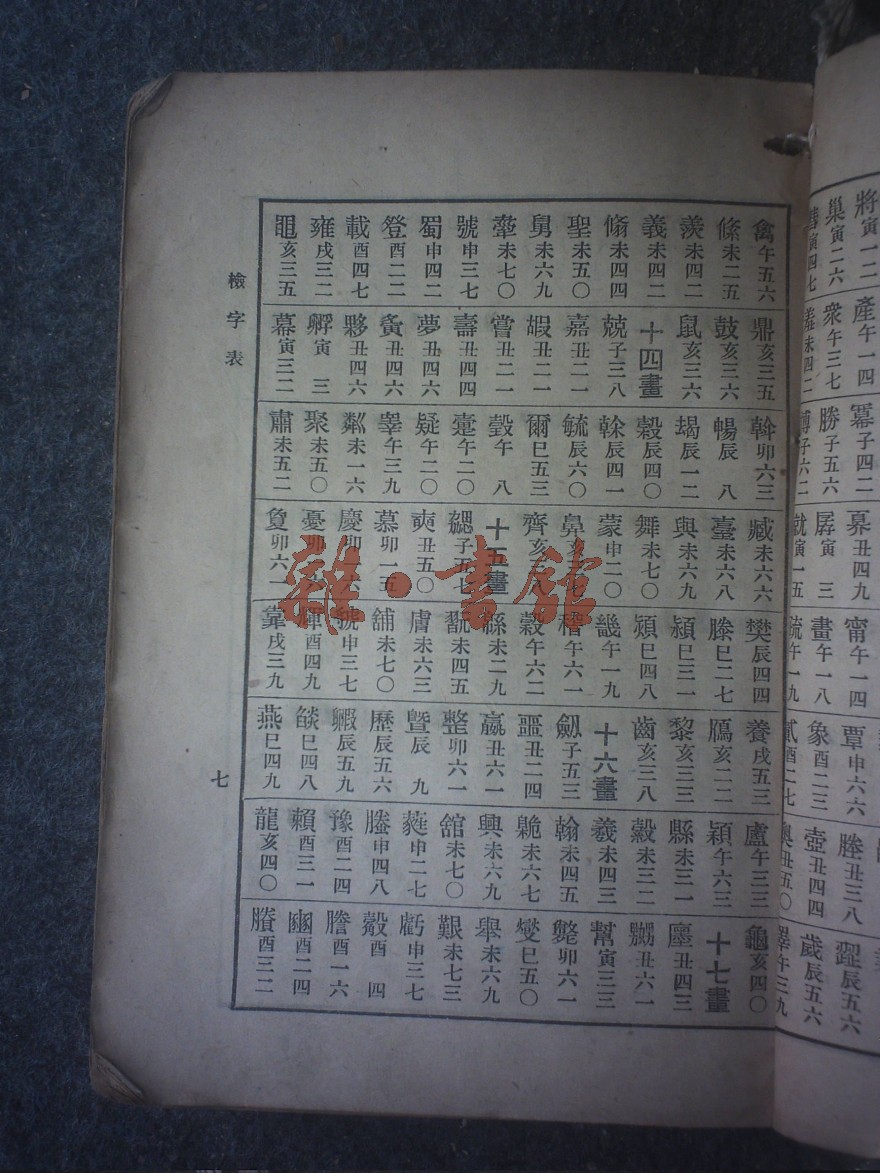 禽午五六
絛未二五
羨未四二
義未四二
脩未四四
聖未五〇
舅未六九
犖未七〇
號申三七
蜀申四二
登酉二二
載酉四七
雍戌三二
黽亥三五
鼎亥三五
鼓亥三六
鼠亥三六
十四畫
兢子三八
嘉丑二一
嘏丑二一
嘗丑二一
壽丑四四
夢丑四六
夤丑四六
夥丑四六
孵寅三
幕寅三二
斡卯六三
暢辰八
朅辰一二
穀辰四〇
榦辰四一
毓辰六〇
爾巳五三
瑴午八
疐午二〇
疑午二〇
睪午三九
粼未一六
聚未五〇
肅未五二
臧未六六
臺未六八
與未六九
舞未七〇
蒙申二〇
鼻亥三七
齊亥三八
十五畫
勰子五七
奭丑五〇
慕卯一五
慶卯一六
憂卯一六
敻卯六一
樊辰四四
滕巳二七
潁巳三一
熲巳四八
畿午一九
稽午六一
穀午六二
緜未二九
翫未四五
膚未六三
舖未七〇
虢申三七
輝酉四九
靠戌三九
養戌五三
鴈亥二二
黎亥三三
齒亥三八
十六畫
劒子五三
噩丑二四
嬴丑六一
整卯六一
曁辰九
歷辰五六
赮辰五九
燄巳四八
燕巳四九
盧午三三
穎午六三
縣未三一
縠未三二
羲未四三
翰未四五
臲未六七
興未六九
舘未七〇
蕤申二七
螣申四八
豫酉二四
賴酉三一
龍亥四〇
龜亥四〇
十七畫
壥丑四三
嬲丑六一
幫寅三三
斃卯六一
燮巳五〇
舉未六九
艱未七三
虧申三七
轂酉四
謄酉一六
豳酉二四
賸酉三二
檢字表
七
將寅一二
巢寅二六
彗寅四七
產午一四
衆午三七
羕未四二
冪子四二
勝子五六
博子六二
募丑四九
孱寅三
就寅一五
甯午一四
畫午一八
疏午一九
覃申六六
象酉二三
貳酉二七
塍丑三八
壺丑四四
奧丑五〇
歰辰五六
歲辰五六
睪午三九
雜·書館